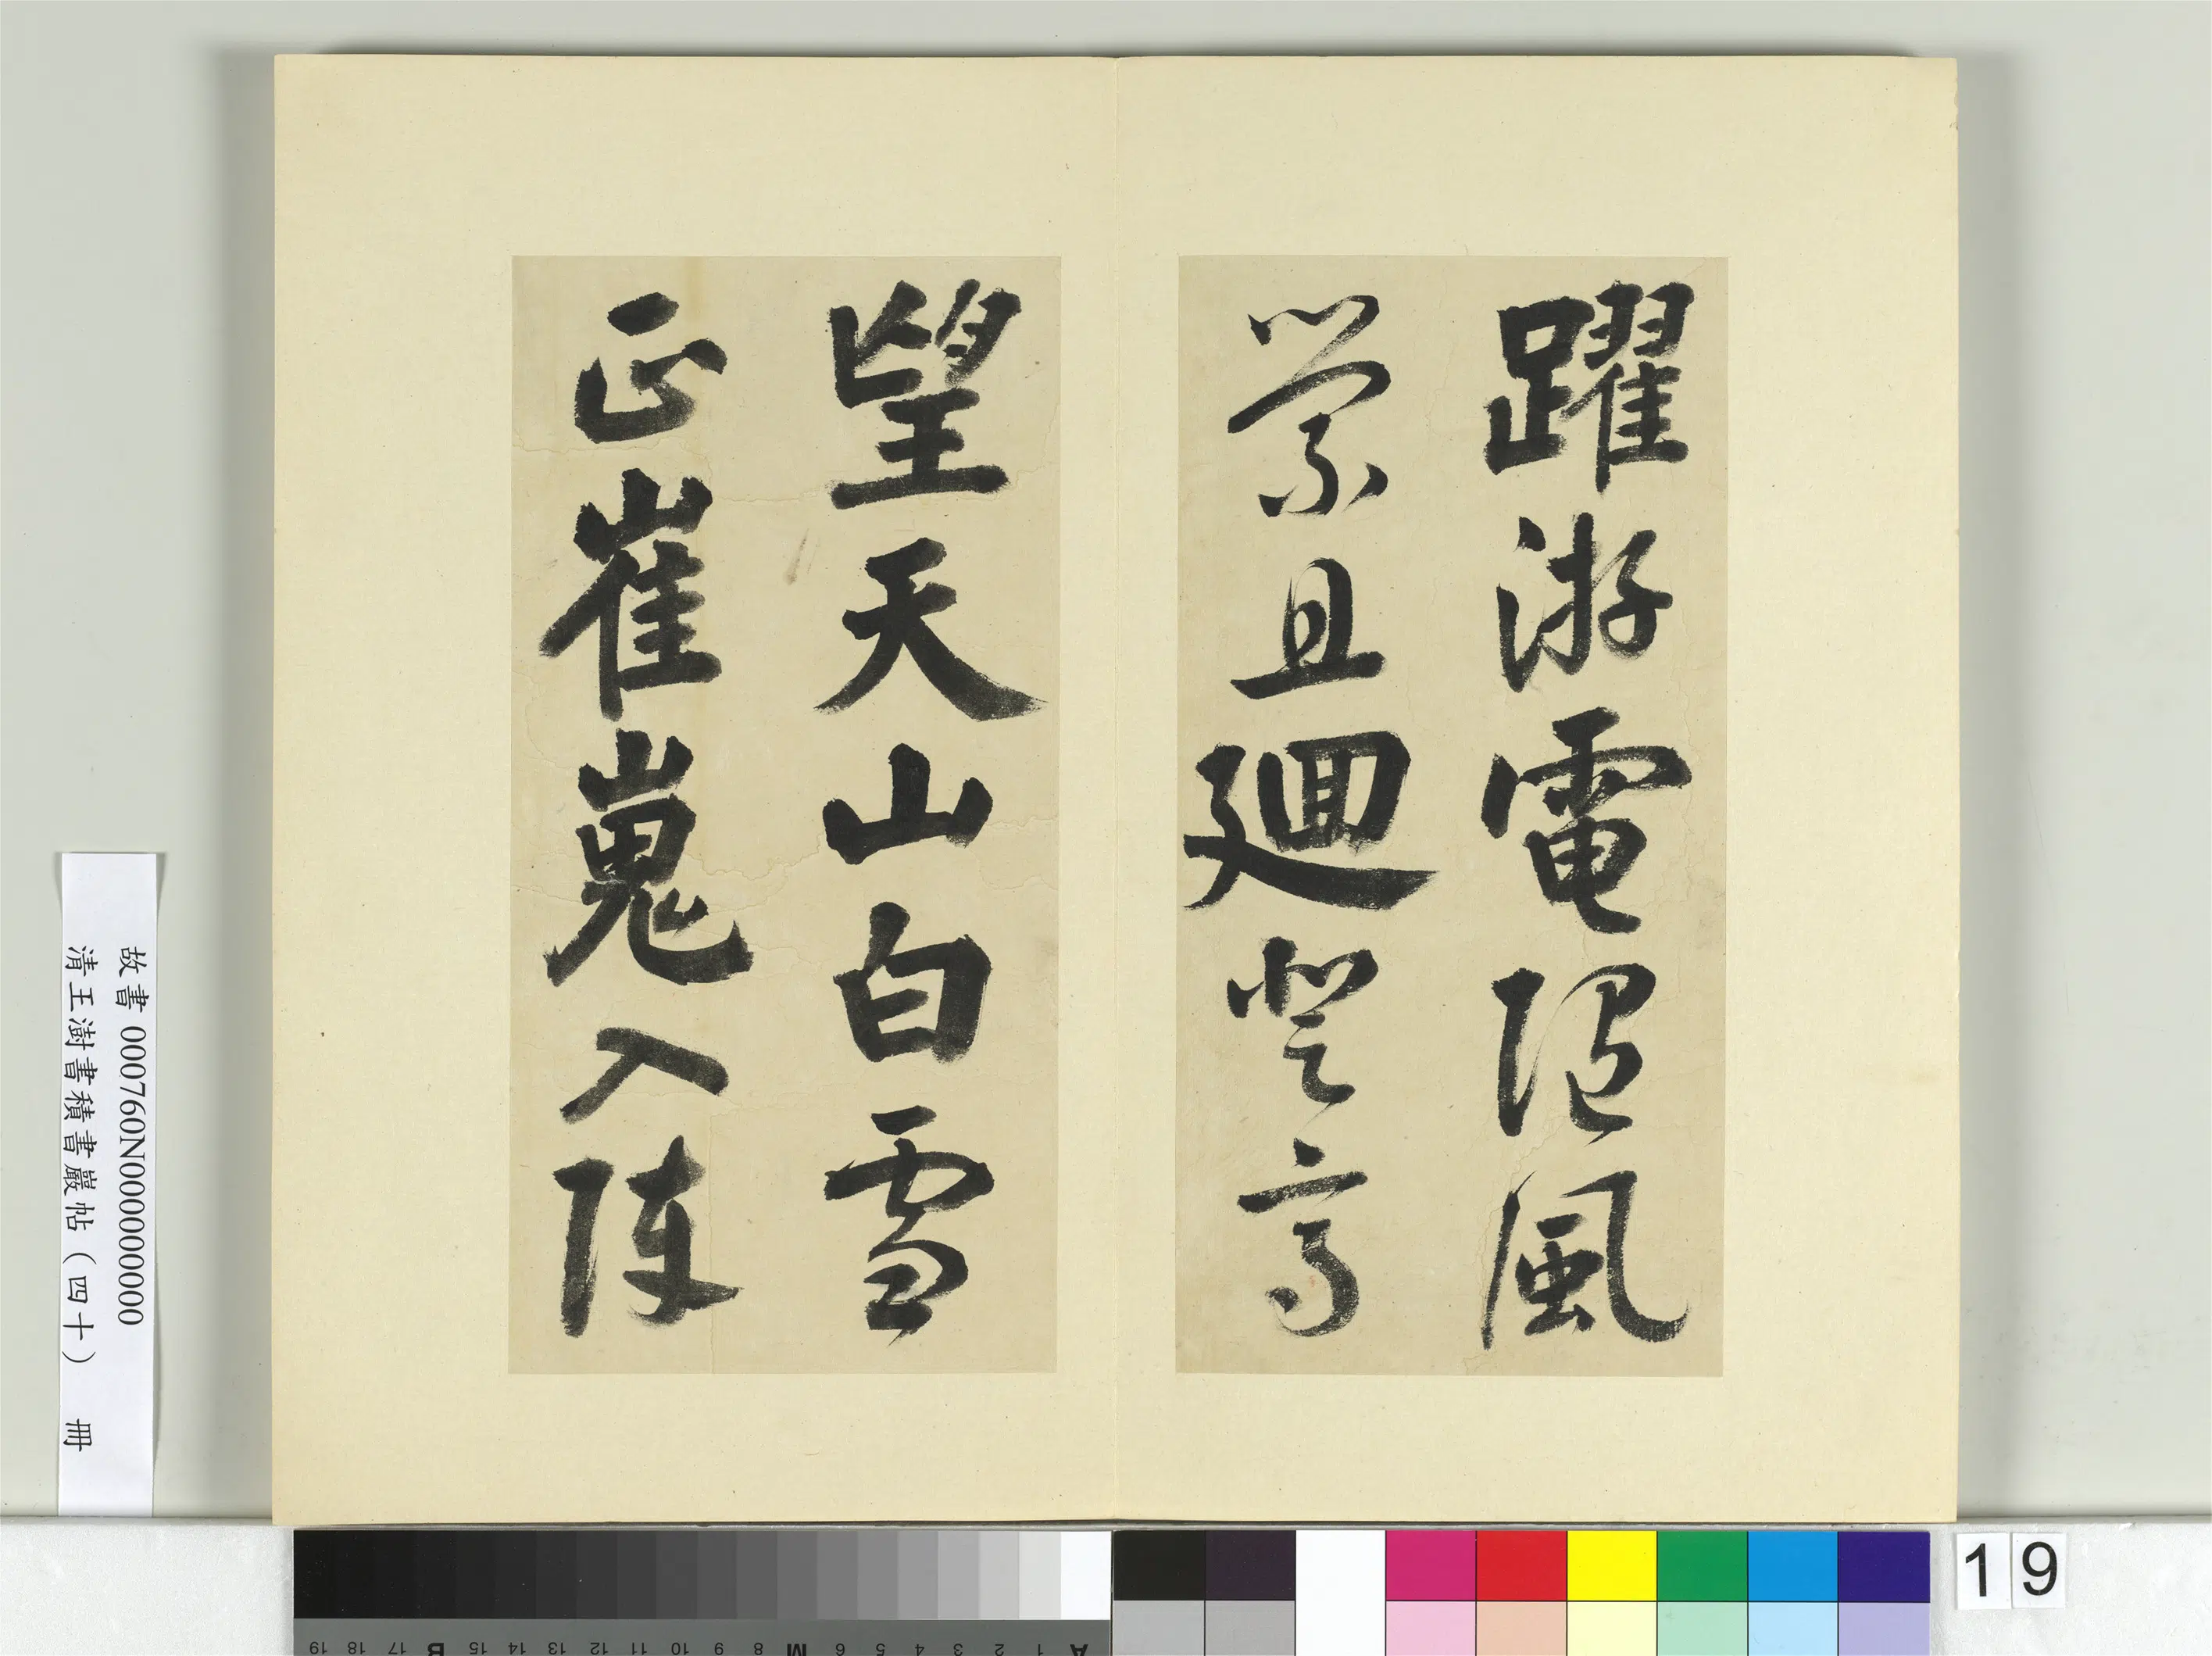 躍游電隨風
縈且迴登高
望天山白雪
正崔嵬入陣
故書 000760N000000000
清王澍書積書巖帖（四十） 冊
19
A 1 2 3 4 5 6 M 8 9 10 11 12 13 14 15 B 17 18 19